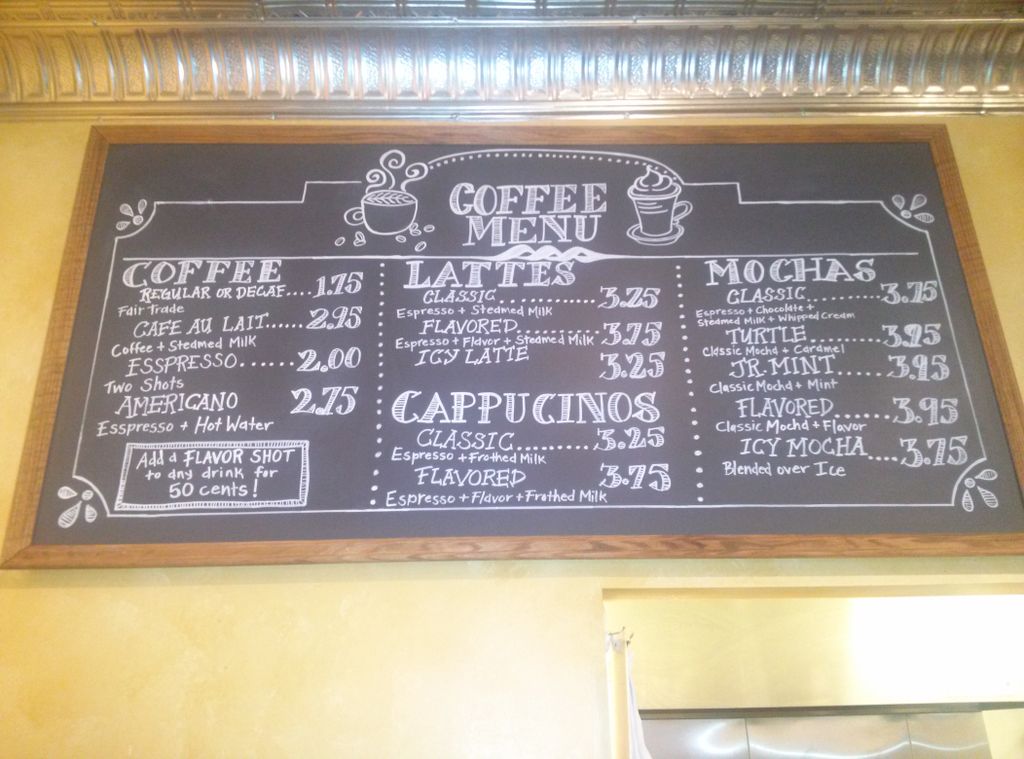 COFFEE
MENU
COFFEE
REGULAR OR DECAF....1.75
Fair Trade
CAFE AU LAIT......2.95
Coffee + Steamed Milk
ESSPRESSO......2.00
Two Shots
AMERICANO 2.75
Esspresso + Hot Water
Add a FLAVOR SHOT
to any drink for
50 cents!
LATTES
CLASSIC..............3.25
Espresso + Steamed Milk
FLAVORED...........3.75
Espresso + Flavor + Steamed Milk
ICY LATTE 3.25
CAPPUCINOS
CLASSIC...........3.25
Espresso + Frothed Milk
FLAVORED 3.75
Espresso + Flavor + Frothed Milk
MOCHAS
CLASSIC..........3.75
Espresso + Chocolate +
Steamed Milk + Whipped Cream
TURTLE..........3.95
Classic Mocha + Caramel
JR. MINT......3.95
Classic Mocha + Mint
FLAVORED......3.95
Classic Mocha + Flavor
ICY MOCHA....3.75
Blended over Ice